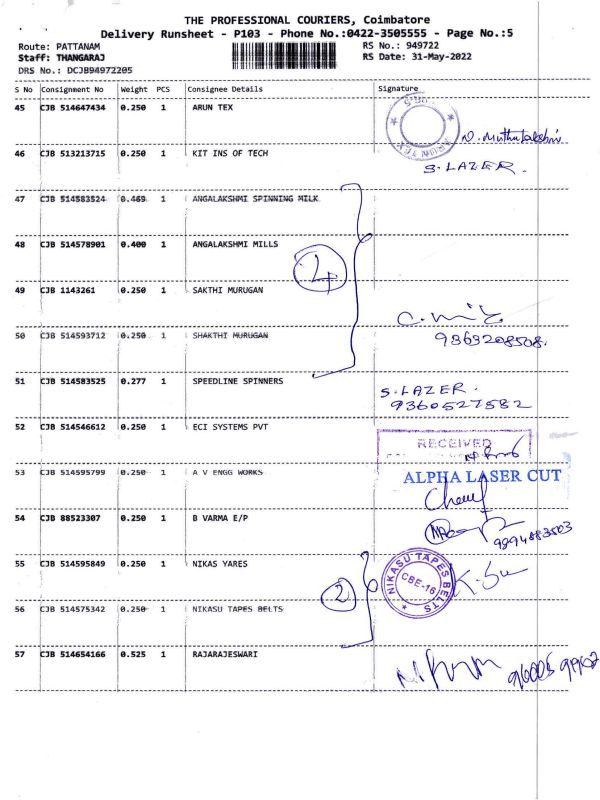 THE PROFESSIONAL COURIERS, Coimbatore
Delivery Runsheet - P103 - Phone No.:0422-3505555 - Page No.:5
Route: PATTANAM RS No.: 949722
Staff: THANGARAJ RS Date: 31-May-2022
DRS No.: DCJB94972205
S No Consignment No Weight PCS Consignee Details Signature
45 CJB 514647434 0.250 1 ARUN TEX
ARUN TEX
N. Muthulakshmi
46 CJB 513213715 0.250 1 KIT INS OF TECH S.LAZER.
47 CJB 514583524 0.469 1 ANGALAKSHMI SPINNING MILK
48 CJB 514578901 0.400 1 ANGALAKSHMI MILLS
4
49 CJB 1143261 0.250 1 SAKTHI MURUGAN
50 CJB 514593712 0.250 1 SHAKTHI MURUGAN
9363208508.
51 CJB 514583525 0.277 1 SPEEDLINE SPINNERS S.LAZER.
9360527582
52 CJB 514546612 0.250 1 ECI SYSTEMS PVT RECEIVED
53 CJB 514595799 0.250 1 A V ENGG WORKS ALPHA LASER CUT
54 CJB 88523307 0.250 1 B VARMA E/P
9994883503
55 CJB 514595849 0.250 1 NIKAS YARES
NIKASU TAPES BELTS
CBE-16
2
56 CJB 514575342 0.250 1 NIKASU TAPES BELTS
57 CJB 514654166 0.525 1 RAJARAJESWARI